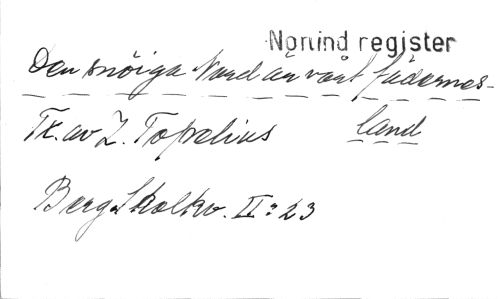 Norlind register
Den snöiga Nord är vårt fädernes-
land
Tx. av Z. Topelius
Berg. Skolkv. II: 23